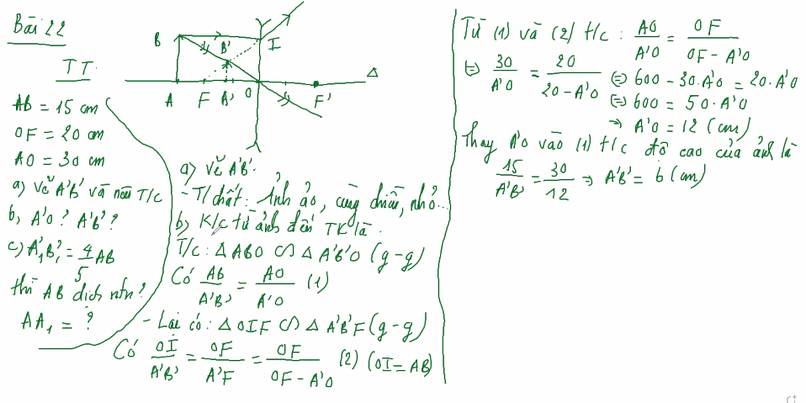 Bài 22
TT:
AB = 15 cm
OF = 20 cm
AO = 30 cm
a) Vẽ A'B' và nêu T/c
b, A'O? A'B'?
c) A'₁B'₁ = 4/5 AB
thì AB dịch ntn?
AA₁ = ?
B
B'
I
A
F
A'
O
F'
Δ
a) Vẽ A'B'.
- T/chất: Ảnh ảo, cùng chiều, nhỏ...
b) K/c từ ảnh đến TK là:
T/c: Δ ABO ∽ Δ A'B'O (g-g)
Có AB/A'B' = AO/A'O (1)
- Lại có: Δ OIF ∽ Δ A'B'F (g-g)
Có OI/A'B' = OF/A'F = OF/OF - A'O (2) (OI = AB)
Từ (1) và (2) t/c: AO/A'O = OF/OF - A'O
⇔ 30/A'O = 20/20 - A'O ⇔ 600 - 30.A'O = 20.A'O
⇔ 600 = 50.A'O
→ A'O = 12 (cm)
Thay A'O vào (1) t/c độ cao của ảnh là
15/A'B' = 30/12 ⇒ A'B' = 6 (cm)